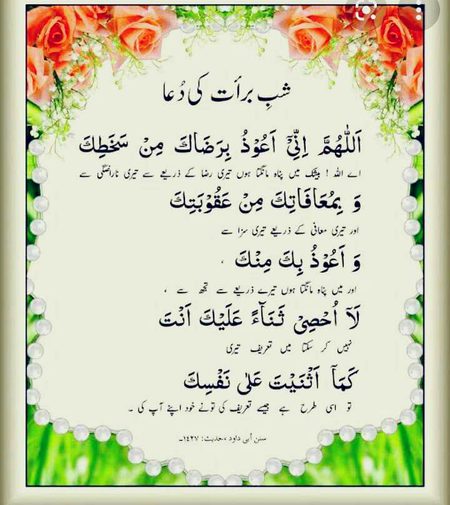 شبِ برأت کی دُعا
اَللّٰهُمَّ اِنِّیْٓ اَعُوْذُ بِرَضَاكَ مِنْ سَخَطِكَ
اے اللہ ! بیشک میں پناہ مانگتا ہوں تیری رضا کے ذریعے سے تیری ناراضگی سے
وَ بِمُعَافَاتِكَ مِنْ عَقُوْبَتِكَ
اور تیری معافی کے ذریعے تیری سزا سے
وَ اَعُوْذُ بِكَ مِنْكَ ،
اور میں پناہ مانگتا ہوں تیرے ذریعے سے تجھ سے ،
لَآ اُحْصِیْ ثَنَآءً عَلَیْكَ اَنْتَ
نہیں کر سکتا میں تعریف تیری
كَمَآ اَثْنَیْتَ عَلٰی نَفْسِكَ
تو اسی طرح ہے جیسے تعریف کی تونے خود اپنے آپ کی ۔
سنن أبی داود حدیث: ۱۴۲۷۔